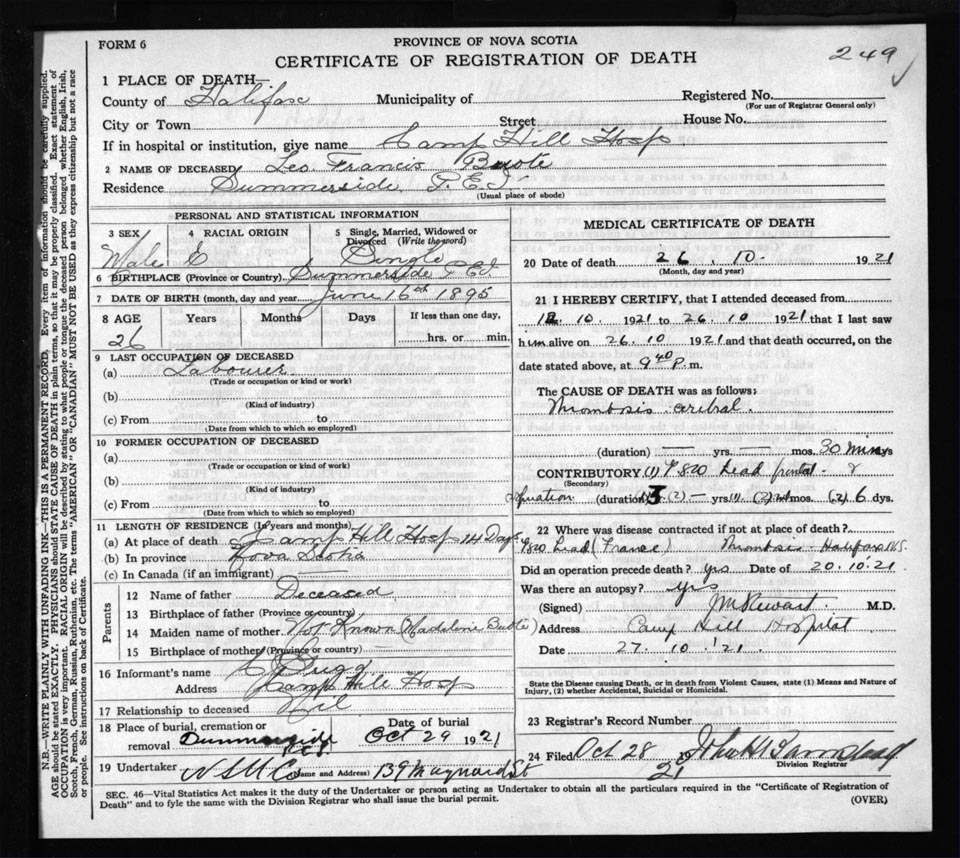 FORM 6
PROVINCE OF NOVA SCOTIA
CERTIFICATE OF REGISTRATION OF DEATH
249
1 PLACE OF DEATH—
County of Halifax Municipality of Registered No.
(For use of Registrar General only)
City or Town Street House No.
If in hospital or institution, give name Camp Hill Hosp
2 NAME OF DECEASED Leo. Francis Buote
Residence Summerside P.E.I.
(Usual place of abode)
PERSONAL AND STATISTICAL INFORMATION
3 SEX Male
4 RACIAL ORIGIN
5 Single, Married, Widowed or Divorced (Write the word) Single
6 BIRTHPLACE (Province or Country) Summerside P E I
7 DATE OF BIRTH (month, day and year) June 16th 1895
8 AGE Years Months Days If less than one day,
26 hrs. or min.
9 LAST OCCUPATION OF DECEASED
(a) Labourer
(Trade or occupation or kind or work)
(b)
(Kind of industry)
(c) From to
(Date from which to which so employed)
10 FORMER OCCUPATION OF DECEASED
(a)
(Trade or occupation or kind of work)
(b)
(Kind of industry)
(c) From to
(Date from which to which so employed)
11 LENGTH OF RESIDENCE (In years and months)
(a) At place of death Camp Hill Hosp 14 Days
(b) In province Nova Scotia
(c) In Canada (if an immigrant) —
Parents
12 Name of father Deceased
13 Birthplace of father (Province or country)
14 Maiden name of mother Not Known (Madeline Buote)
15 Birthplace of mother (Province or country)
16 Informant's name
Address Camp Hill Hosp
17 Relationship to deceased Nil
18 Place of burial, cremation or removal Summerside
Date of burial
Oct 29 1921
19 Undertaker N S U Co (Name and Address) 139 Maynard St
MEDICAL CERTIFICATE OF DEATH
20 Date of death 26. 10. 1921
(Month, day and year)
21 I HEREBY CERTIFY, that I attended deceased from
12. 10. 1921 to 26. 10 1921 that I last saw
him alive on 26. 10 1921 and that death occurred, on the
date stated above, at 9 40 P. m.
The CAUSE OF DEATH was as follows:
Thrombosis
(duration) — yrs. — mos. 30 Mins
CONTRIBUTORY (1)
(Secondary)
(duration) yrs. mos. (2) 6 dys.
22 Where was disease contracted if not at place of death?
(France) Thrombosis Halifax N.S.
Did an operation precede death? yrs Date of 20.10.21
Was there an autopsy? yrs
(Signed) M.D.
Address Camp Hill Hospital
Date 27. 10. '21.
State the Disease causing Death, or in death from Violent Causes, state (1) Means and Nature of
Injury, (2) whether Accidental, Suicidal or Homicidal.
23 Registrar's Record Number
24 Filed Oct 28 19 21
Division Registrar
SEC. 46—Vital Statistics Act makes it the duty of the Undertaker or person acting as Undertaker to obtain all the particulars required in the "Certificate of Registration of
Death" and to fyle the same with the Division Registrar who shall issue the burial permit. (OVER)
N.B.—WRITE PLAINLY WITH UNFADING INK—THIS IS A PERMANENT RECORD. Every item of information should be carefully supplied.
AGE should be stated EXACTLY. PHYSICIANS should STATE CAUSE OF DEATH in plain terms, so that it may be properly classified. Exact statement of
OCCUPATION is very important. RACIAL ORIGIN will be described by stating to what people or tongue the deceased person belonged, whether English, Irish,
Scotch, French, German, Russian, Ruthenian, etc. The terms "AMERICAN" OR "CANADIAN" MUST NOT BE USED as they express citizenship but not a race
or people. See instructions on back of Certificate.